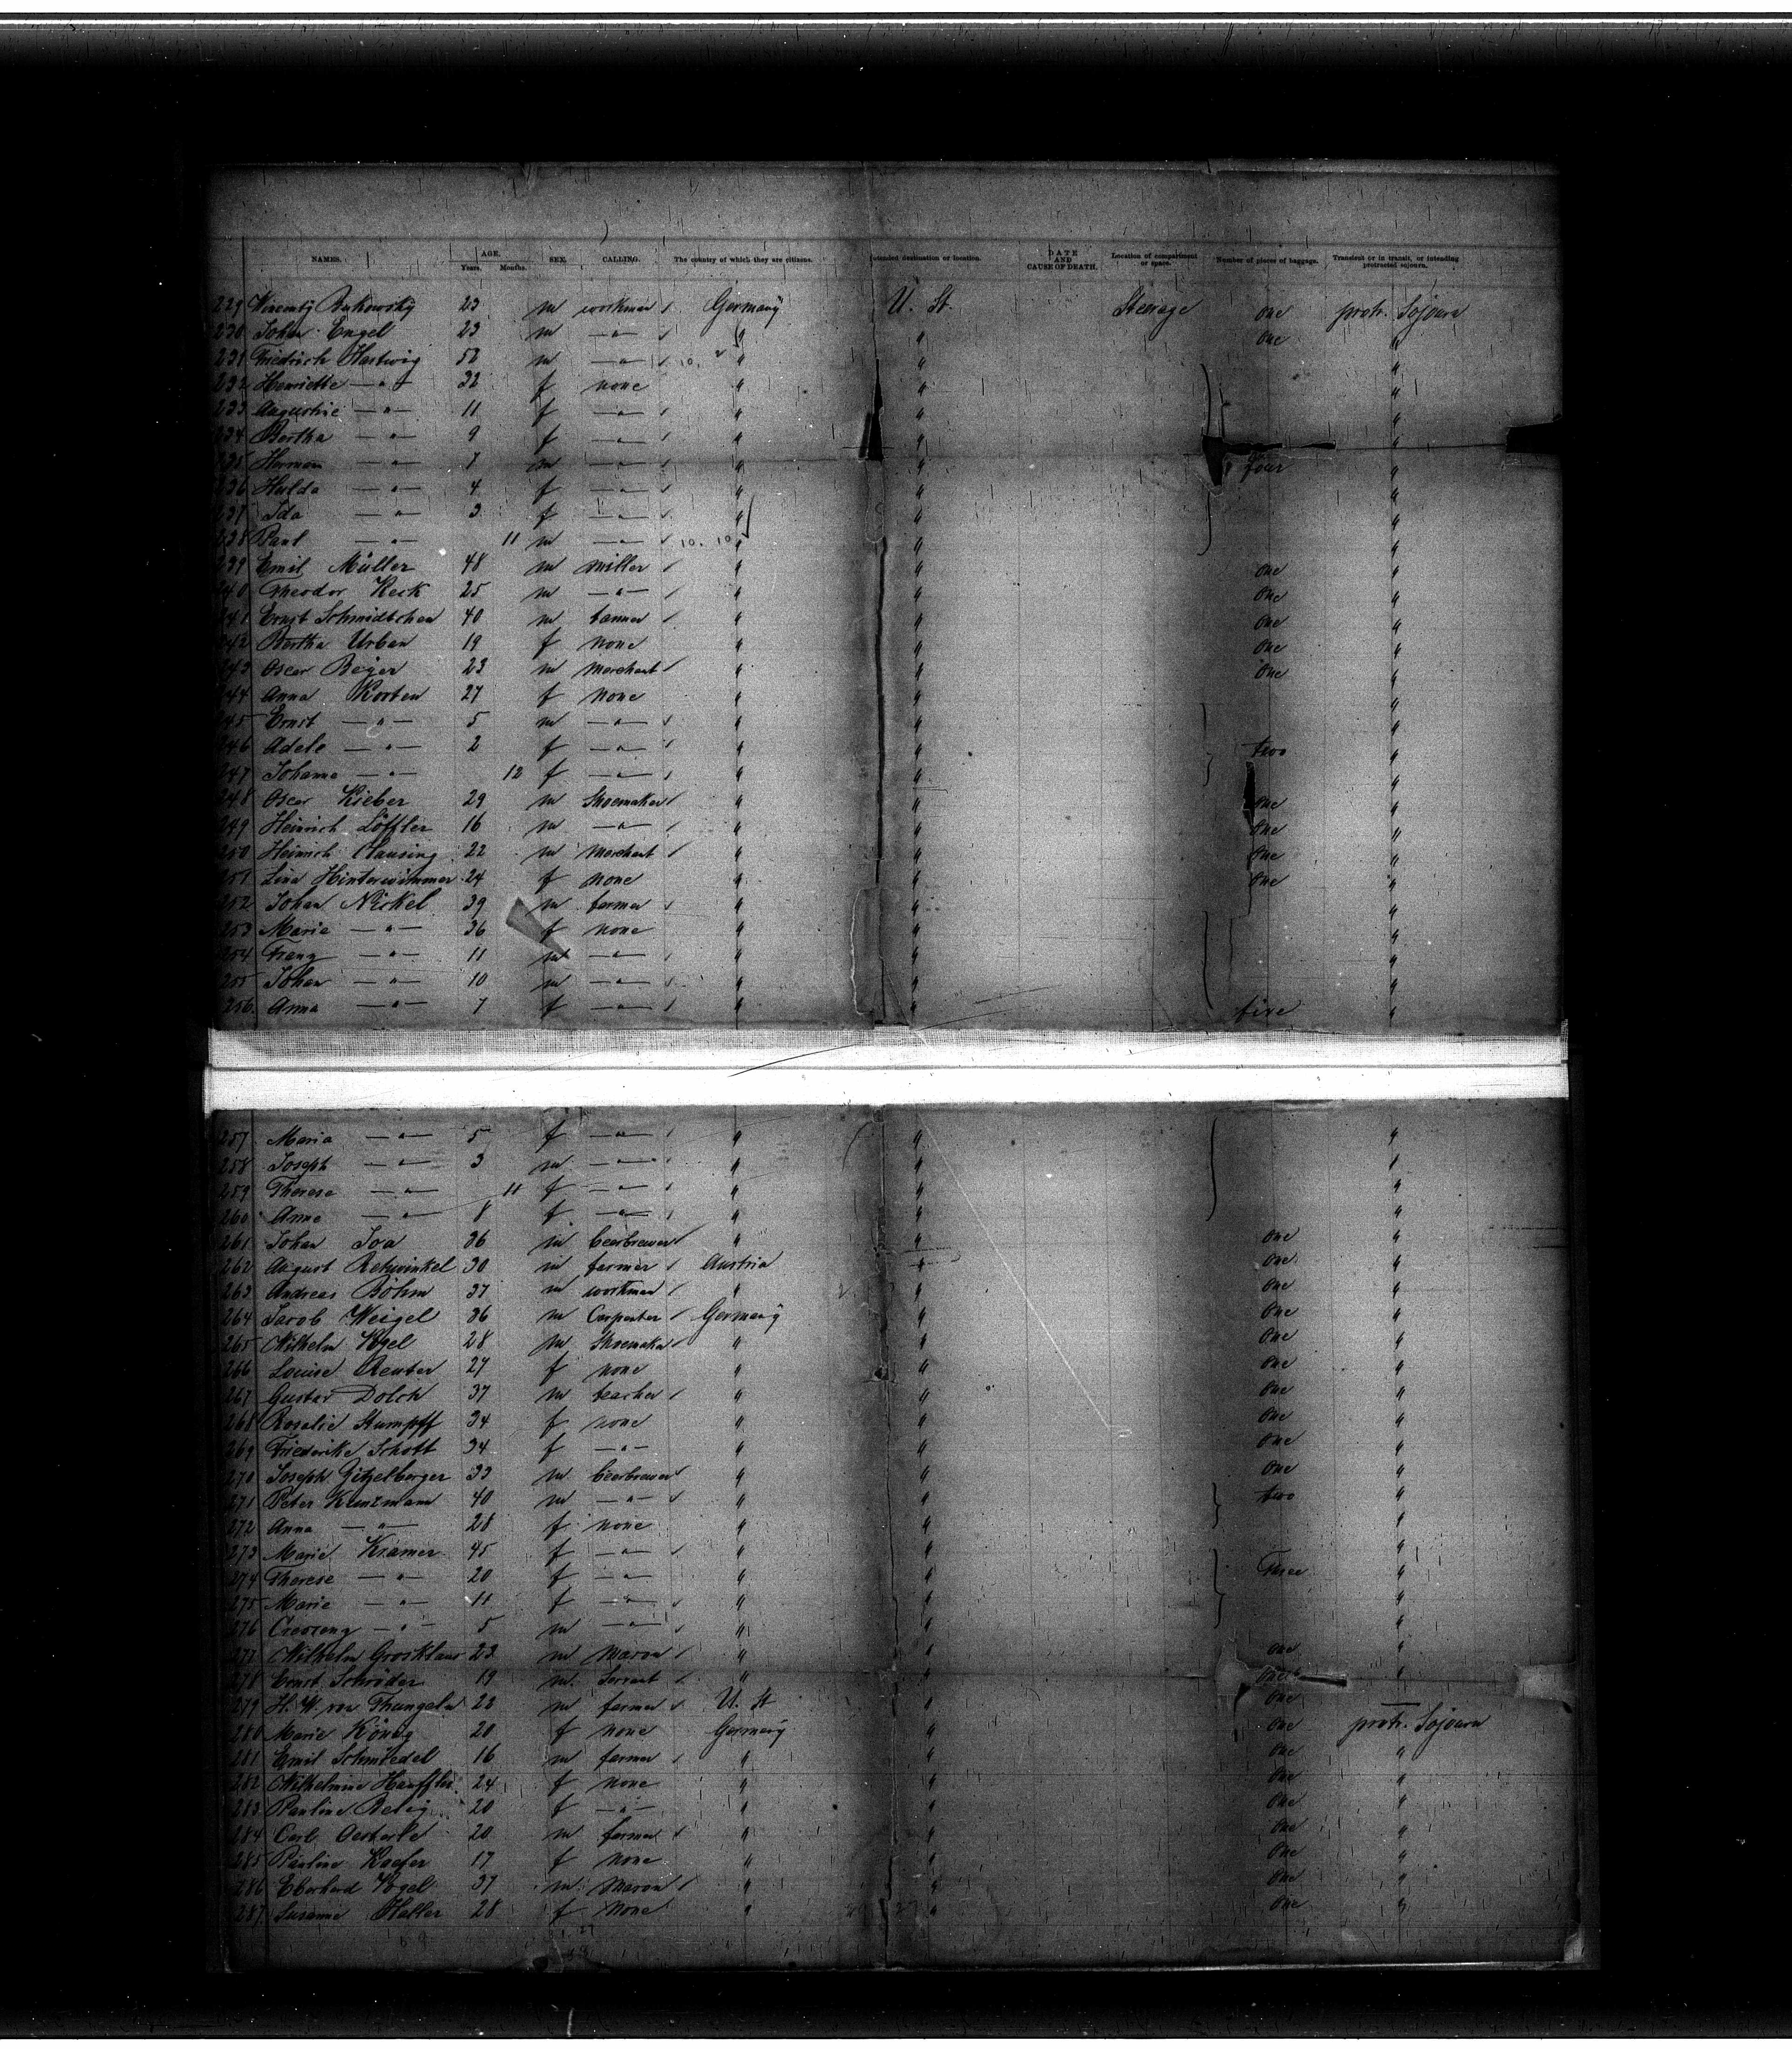 NAMES. AGE. Years. Months. SEX. CALLING. The country of which they are citizens. Intended destination or location. DATE AND CAUSE OF DEATH. Location of compartment or space. Number of pieces of baggage. Transient or in transit, or intending protracted sojourn.
229 23 m workman Germany U. St. Steerage one protr. Sojourn
230 Johan Engel 23 m —"— " " one "
231 Friedrich Hartwig 52 m —"— 10. " " "
232 Henriette —"— 32 f none " " "
233 Augustine —"— 11 f —"— " " "
234 Bertha —"— 9 f —"— " " "
235 Herman —"— 7 m —"— " " four "
236 Hulda —"— 4 f —"— " " "
237 Ida —"— 3 f —"— " " "
238 Paul —"— 11 m —"— 10. 10 " " "
239 Emil Müller 48 m miller " " one "
240 Theodor Keck 25 m —"— " " one "
241 Ernst Schmidtchen 40 m tanner " " one "
242 Bertha Urban 19 f none " " one "
243 Oscar Beyer 23 m merchant " " one "
244 Anna Korten 27 f none " " "
245 Ernst —"— 5 m —"— " " "
246 Adele —"— 2 f —"— " " two "
247 Johanna —"— 12 f —"— " " "
248 Oscar Kieber 29 m Shoemaker " " one "
249 Heinrich Löffler 16 m —"— " " one "
250 Heinrich Clausing 22 m merchant " " one "
251 Lina Hinterwimmer 24 f none " " one "
252 Johan Nickel 39 m farmer " " "
253 Maria —"— 36 f none " " "
254 Franz —"— 11 m —"— " " "
255 Johan —"— 10 m —"— " " "
256 Anna —"— 7 f —"— " " five "
257 Maria —"— 5 f —"— " " "
258 Joseph —"— 3 m —"— " " "
259 Therese —"— 11 f —"— " " "
260 Anna —"— 8 f —"— " " "
261 Johan Joa 36 m beerbrewer " " one "
262 August Rehwinkel 30 m farmer Austria " one "
263 Andreas Böhm 37 m workman " " one "
264 Jacob Weigel 36 m Carpenter Germany " one "
265 Wilhelm Vogel 28 m Shoemaker " " one "
266 Louise Reuter 27 f none " " one "
267 Gustav Dolch 37 m teacher " " one "
268 Rosalie Stumpff 34 f none " " one "
269 Friederike Schott 34 f —"— " " one "
270 Joseph Gitzelberger 33 m beerbrewer " " one "
271 Peter Kunzmann 40 m —"— " " two "
272 Anna —"— 28 f none " " "
273 Marie Kramer 45 f —"— " " "
274 Therese —"— 20 f —"— " " Three "
275 Marie —"— 11 f —"— " " "
276 —"— 5 m —"— " " "
277 Wilhelm Grosklaus 23 m mason " " one "
278 Ernst Schröder 19 m Servant " " one "
279 H. W. von Thungeln 22 m farmer U. St " one —
280 Marie König 20 f none Germany " one protr. Sojourn
281 Emil Schmiedel 16 m farmer " " one "
282 Wilhelmine Hauffler 24 f none " " one "
283 Pauline 20 f —"— " " one "
284 Carl Oesterle 20 m farmer " " one "
285 Pauline Kaefer 17 f none " " one "
286 Eberhard Vogel 37 m mason " " one "
287 Susanne Haller 28 f none " " one "